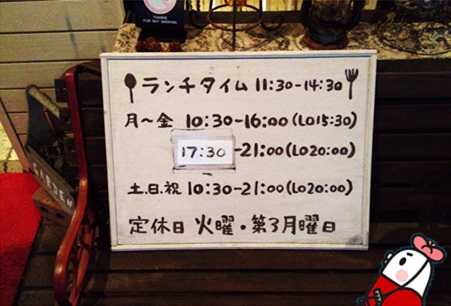 THANKS
FOR NOT SMOKING
ランチタイム 11:30-14:30
月～金 10:30-16:00(LO15:30)
17:30-21:00(LO20:00)
土.日.祝 10:30-21:00(LO20:00)
定休日 火曜・第3月曜日